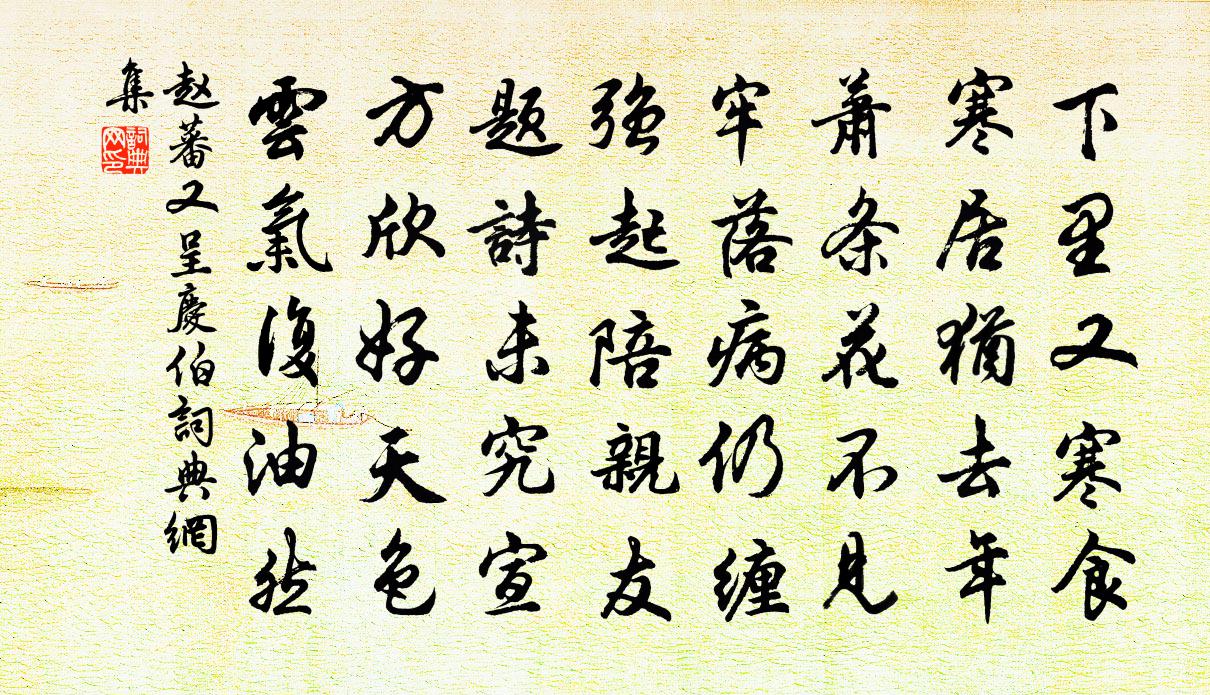 下里又寒食
寒居猶去年
蕭条花不見
牢落病仍纏
強起陪親友
題詩未究宣
方欣好天色
雲氣復油然
赵蕃又呈慶伯詞典網
集
詞典
网印